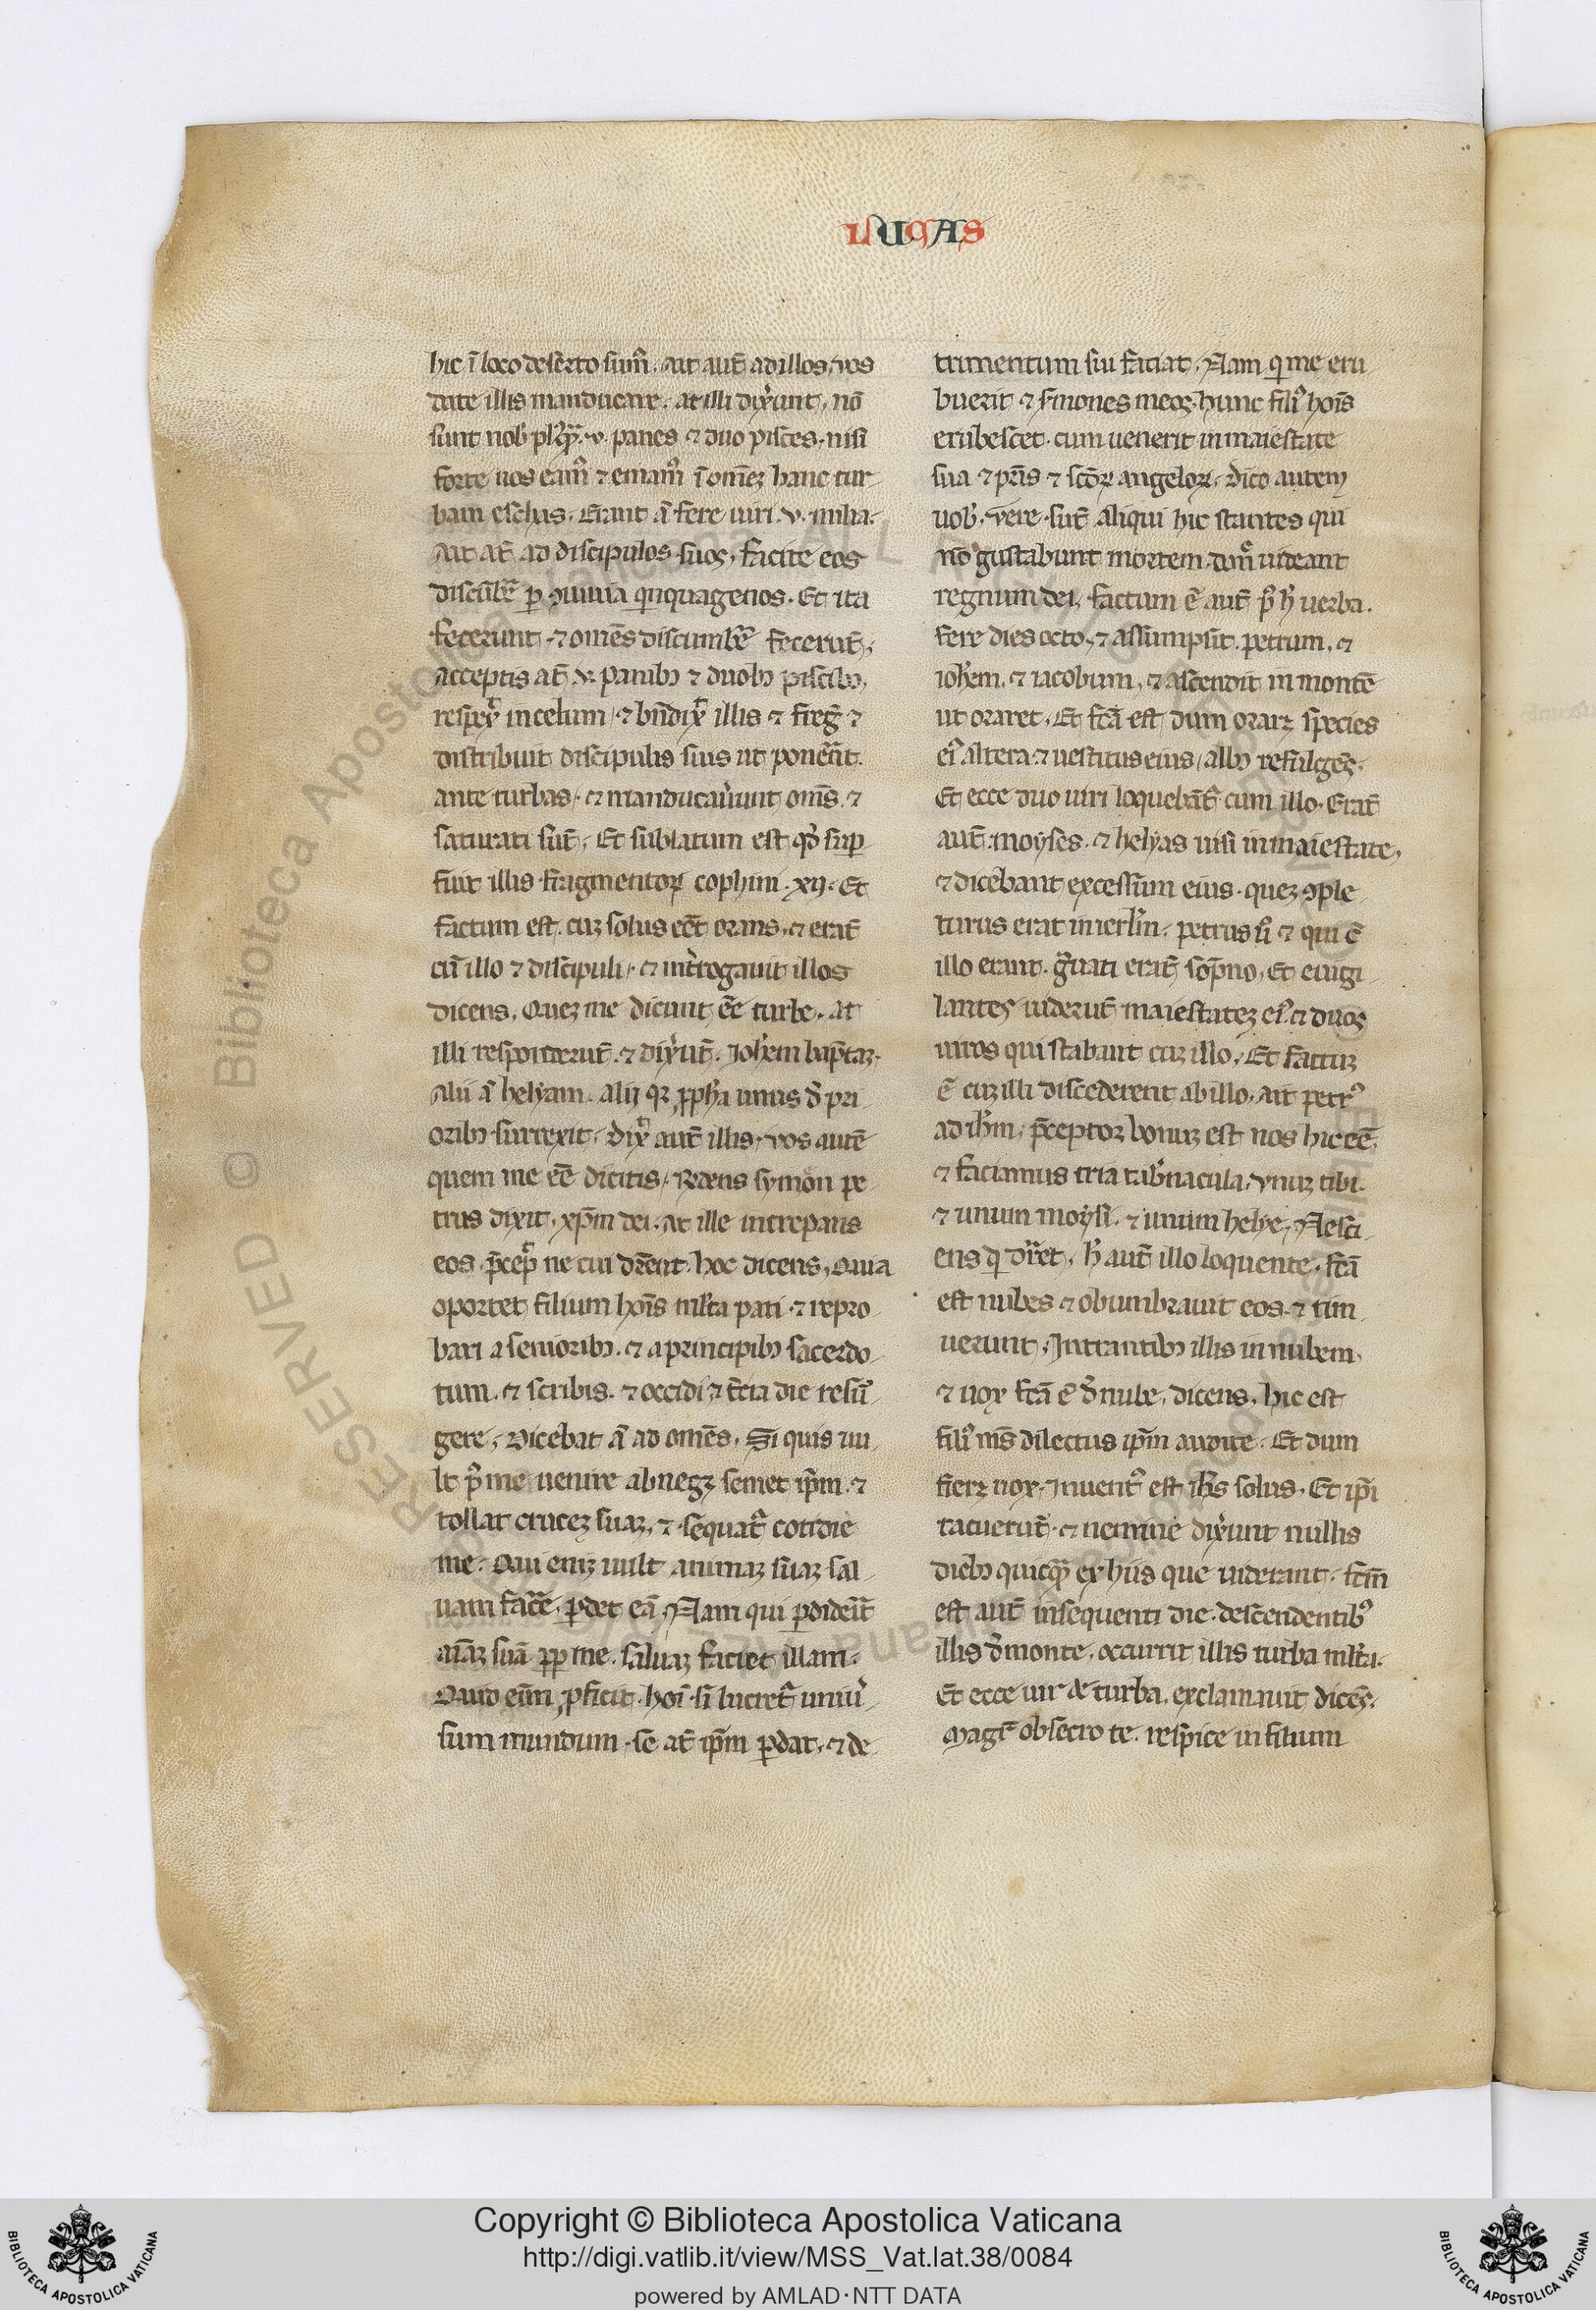 LUCAS
hic ĩ loco deserto sum᷒. Ait aut̃ ad illos, vos
date illis manducare. at illi dix̃unt, nõ
sunt nob̃ plꝰ qͣ .v. panes ⁊ duo pisces. nisi
forte nos eamꝰ ⁊ emamꝰ ĩ omẽz hanc tur
bam eschas. Erant ã fere uiri .v. milia.
Ait at̃ ad discipulos suos, facite eos
discũbẽ ꝑ ꝯuiuia qͥnquagenos. Et ita
fecerunt. ⁊ omẽs discumbẽ fecerũt,
acceptis at̃ .v. panibꝫ ⁊ duobꝫ piscibꝫ,
respex̃ in celum, ⁊ bñdix̃ illis ⁊ freg̃ ⁊
distribuit discipulis suis ut ponẽnt
ante turbas. ⁊ manducaũunt om̃s. ⁊
saturati sũt. Et sublatum est qᷘ suꝑ
fuit illis fragmentoꝝ cophini .xij. Et
factum est. cuꝫ solus eẽt orans, ⁊ erãt
cũ illo ⁊ discipuli. ⁊ int̃rogauit illos
dicens, Quez me dicunt eẽ turbe. at
illi responderũt. ⁊ dix̃ũt. Joh̃em bap̃taz.
Alii ã helyam. alij qꝛ ꝓph̃a unus d̃ pri
oribꝫ surrexit. dix̃ aut̃ illis. vos autẽ
quem me eẽ dicitis, Rñdens symon pe
trus dixit. xp̃m dei. at ille increpans
eos p̃cep̃ ne cui dr̃ent hoc dicens, Quia
oportet filium hoĩs ml̃ta pati ⁊ repro
bari a senioribꝫ. ⁊ a principibꝫ sacerdo
tum. ⁊ scribis. ⁊ occidi ⁊ t̃cia die resur̃
gere. Dicebat ã ad omẽs. Si quis uu
lt p̃ me uenire abnegꝫ semet ip̃m ⁊
tollat crucez suaz, ⁊ sequat̃ cotidie
me. Qui eniz uult animaz suaz sal
uam facẽ, ꝑdet eã. Nam qui ꝑdideĩt
aĩaz suã ꝓp̃ me. saluaz faciet illam.
Quid eñi ꝓficit hoĩ si lucret̃ uniũ
sum mundum. se at̃ ip̃m ꝑdat. ⁊ de
trimentum sui faciat. Nam qͥ me eru
buerit ⁊ s̃mones meos. hunc filiꝰ hoĩs
erubescet. cum uenerit in maiestate
sua ⁊ pr̃is ⁊ sc̃oꝝ angeloꝝ. dico autem
uob̃. vere sũt aliqui hic stantes qui
nõ gustabunt mortem, donͨ uideant
regnum dei, factum ẽ aut̃ pꝰ h̃ uerba.
fere dies octo, ⁊ assumpsit. petrum, ⁊
ioh̃em, ⁊ iacobum, ⁊ ascendit in montẽ
ut oraret. Et fc̃a est dum oraꝛꝫ species
eiꝰ altera. ⁊ uestitus eius, albꝫ refulgẽs.
Et ecce duo uiri loquebãt̃ cum illo. Erãt
aut̃ moyses. ⁊ helyas uisi in maiestate,
⁊ dicebant excessum eius. quez ꝯple
turus erat in ierl̃m. petrus ũ ⁊ qui c̃
illo erant. gͣuati erãt sop̃no, Et euigi
lantes uiderũt maiestatez eiꝰ ⁊ duos
uiros qui stabant cuz illo, Et factuz
ẽ cuz illi discederent ab illo, ait petrꝰ
ad ih̃m, p̃ceptor bonuz est nos hic eẽ,
⁊ faciamus tria tab̃nacula, vnuz tibi.
⁊ unum moysi. ⁊ unum helye, Nesci
ens qͥd dr̃et, h̃ aut̃ illo loquente. fc̃a
est nubes ⁊ obumbrauit eos. ⁊ tim
uerunt, Intrantibꝫ illis in nubem,
⁊ uox fc̃a ẽ d̃ nube, dicens, hic est
filiꝰ mẽs dilectus ip̃m audite. Et dum
fierꝫ uox. Inuentꝰ est ih̃s solus. Et ip̃i
tacuerũt. ⁊ nemine dix̃unt in illis
diebꝫ quicqͣ ex hiis que uiderant. fc̃m
est aut̃ in sequenti die. descendentibꝰ
illis d̃ monte. occurrit illis turba ml̃ta.
Et ecce uir de turba, exclamauit dicẽs.
Magr̃ obsecro te. respice in filium
© Biblioteca Apostolica Vaticana ALL RIGHTS RESERVED
Copyright © Biblioteca Apostolica Vaticana
http://digi.vatlib.it/view/MSS_Vat.lat.38/0084
powered by AMLAD·NTT DATA
BIBLIOTECA APOSTOLICA VATICANA
BIBLIOTECA APOSTOLICA VATICANA